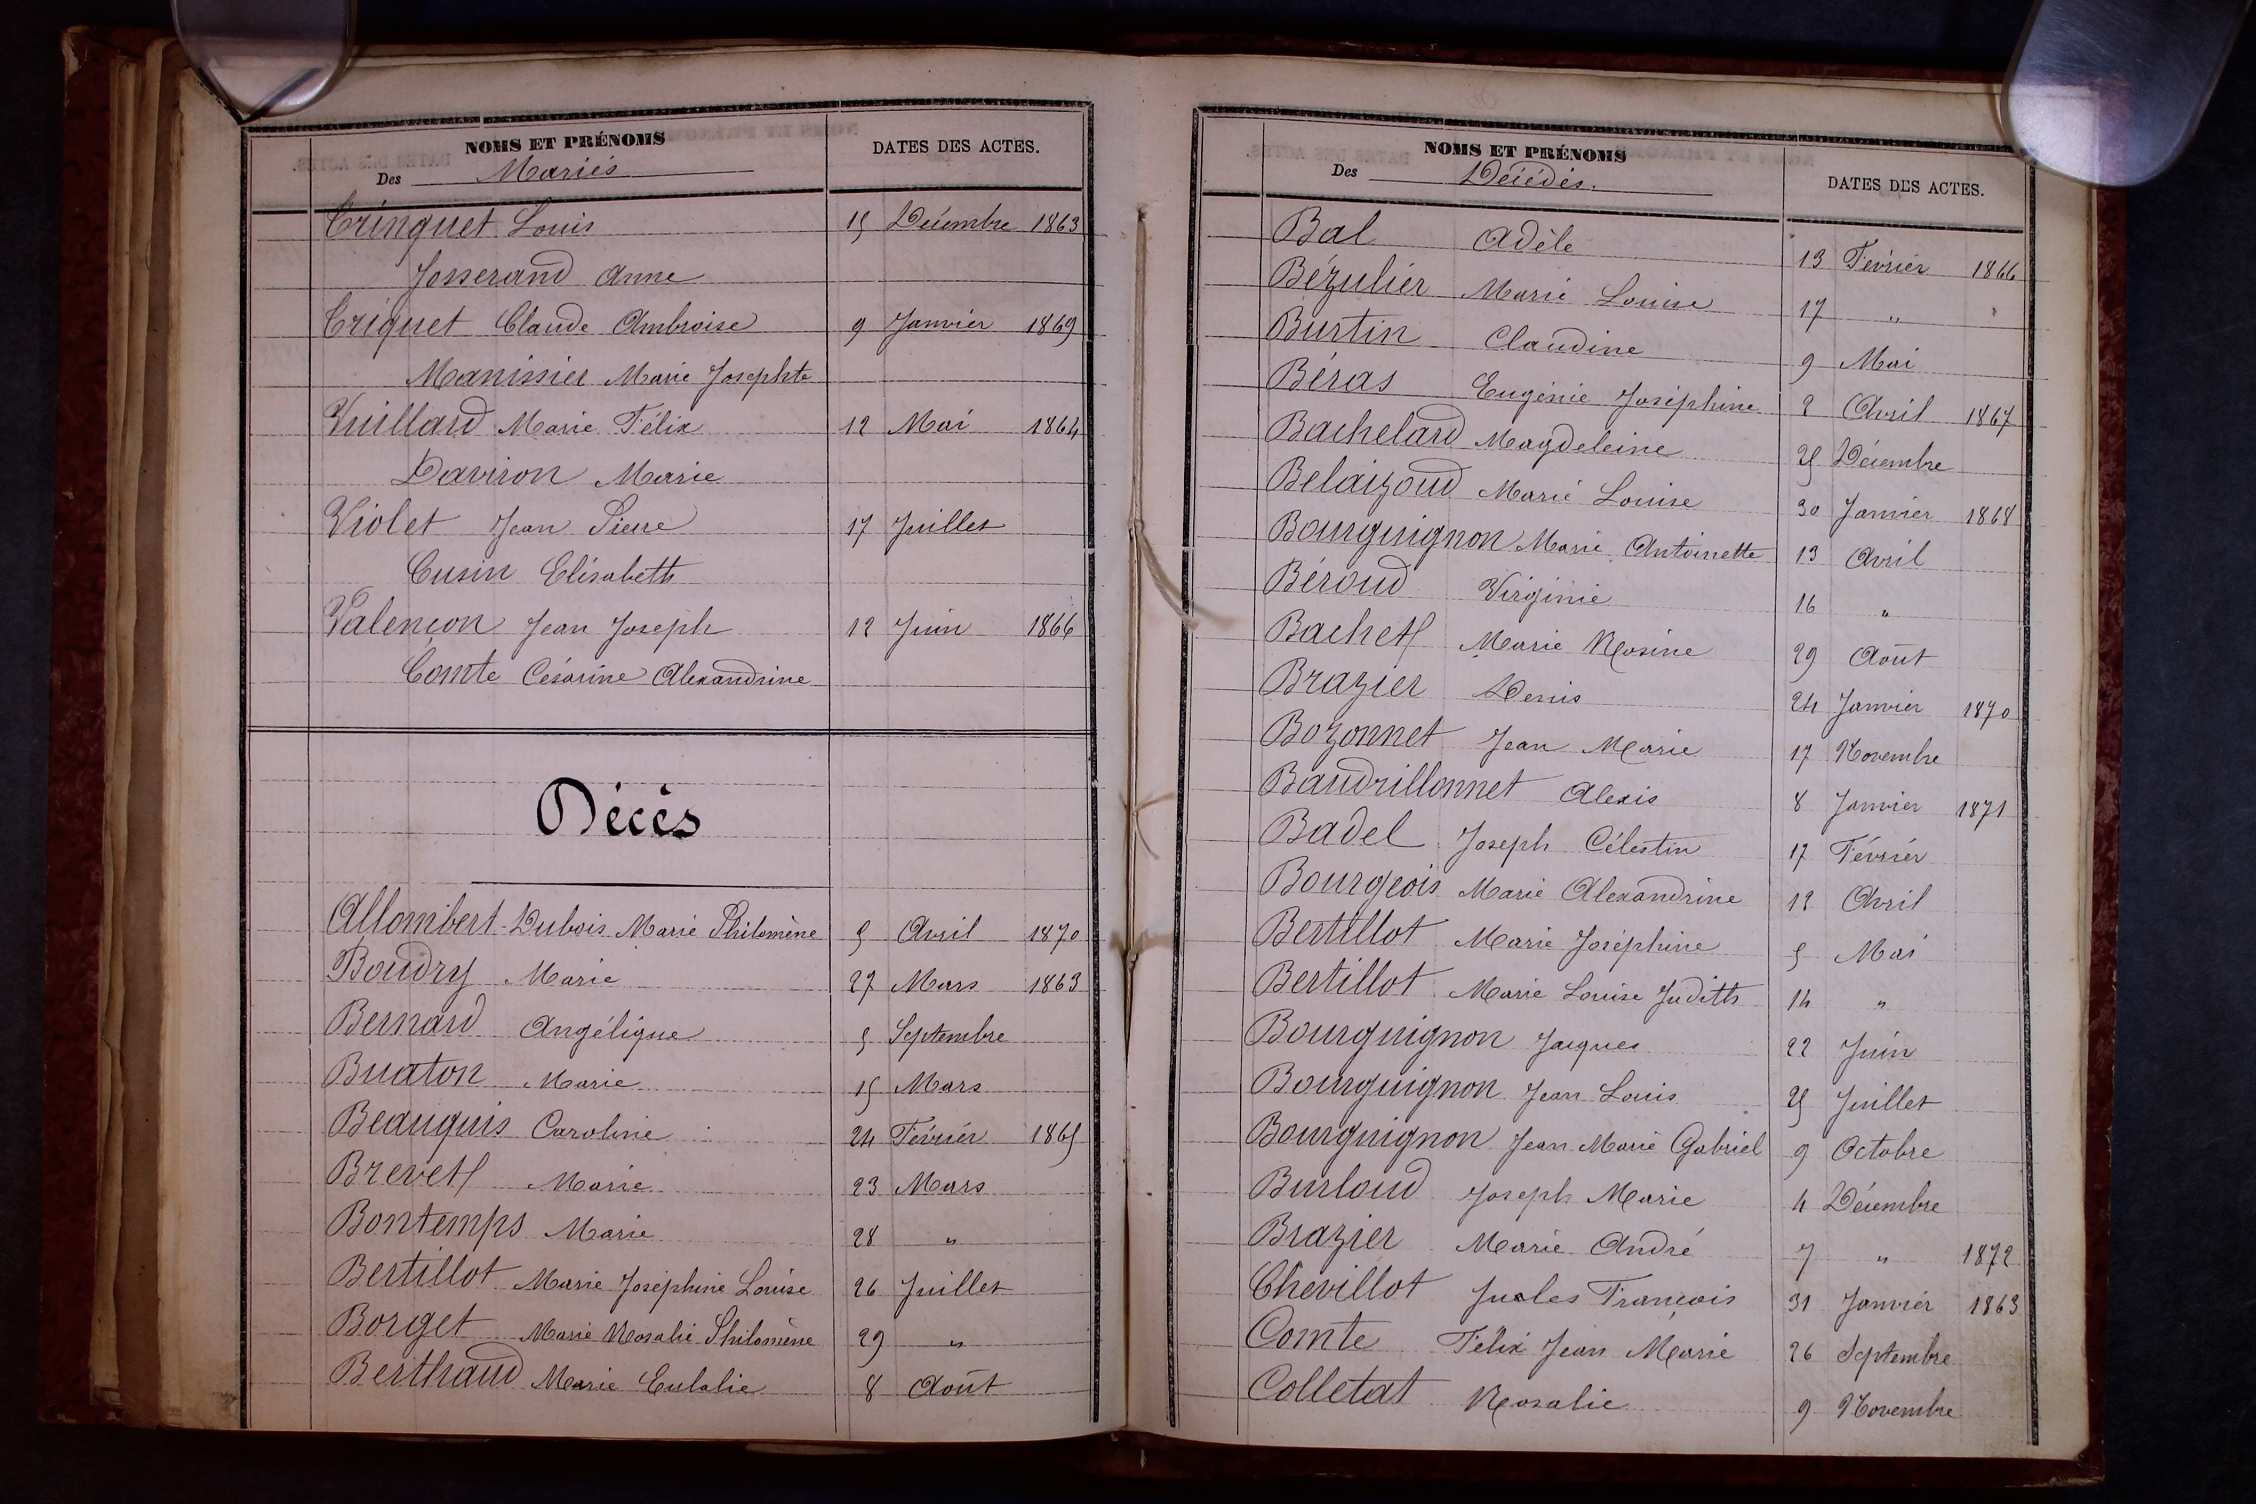 NOMS ET PRÉNOMS
Des Mariés
DATES DES ACTES.
Trinquet Louis 15 Décembre 1863
Josserand Anne
Triquet Claude Ambroise 9 Janvier 1869
Manissier Marie Josephte
Vuillard Marie Félix 12 Mai 1864
Daviron Marie
Violet Jean Pierre 17 Juillet
Cusin Elisabeth
Valençon Jean Joseph 12 Juin 1866
Comte Césarine Alexandrine
Décès
Allombert-Dubois Marie Philomène 5 Avril 1870
Boudry Marie 27 Mars 1863
Bernard Angélique 5 Septembre
Buaton Marie 15 Mars
Beauquis Caroline 24 Février 1865
Brevet Marie 23 Mars
Bontemps Marie 28 "
Bertillot Marie Joséphine Louise 26 Juillet
Borget Marie Rosalie Philomène 29 "
Berthaud Marie Eulalie 8 Août
NOMS ET PRÉNOMS
Des Décédés.
DATES DES ACTES.
Bal Adèle 13 Février 1866
Bézulier Marie Louise 17 " "
Burtin Claudine 9 Mai
Béras Eugénie Joséphine 2 Avril 1867
Bachelard Magdeleine 25 Décembre
Belaizoud Marie Louise 30 Janvier 1868
Bourguignon Marie Antoinette 13 Avril
Béroud Virginie 16 "
Bachet Marie Rosine 29 Août
Brazier Denis 24 Janvier 1870
Bozonnet Jean Marie 17 Novembre
Baudrillonnet Alexis 8 Janvier 1871
Badel Joseph Célestin 17 Février
Bourgeois Marie Alexandrine 12 Avril
Bertillot Marie Joséphine 5 Mai
Bertillot Marie Louise Judith 14 "
Bourguignon Jacques 22 Juin
Bourguignon Jean Louis 25 Juillet
Bourguignon Jean Marie Gabriel 9 Octobre
Burloud Joseph Marie 4 Décembre
Brazier Marie André 7 " 1872
Chevillot Jules François 31 Janvier 1863
Comte Félix Jean Marie 26 Septembre
Colletat Rosalie 9 Novembre